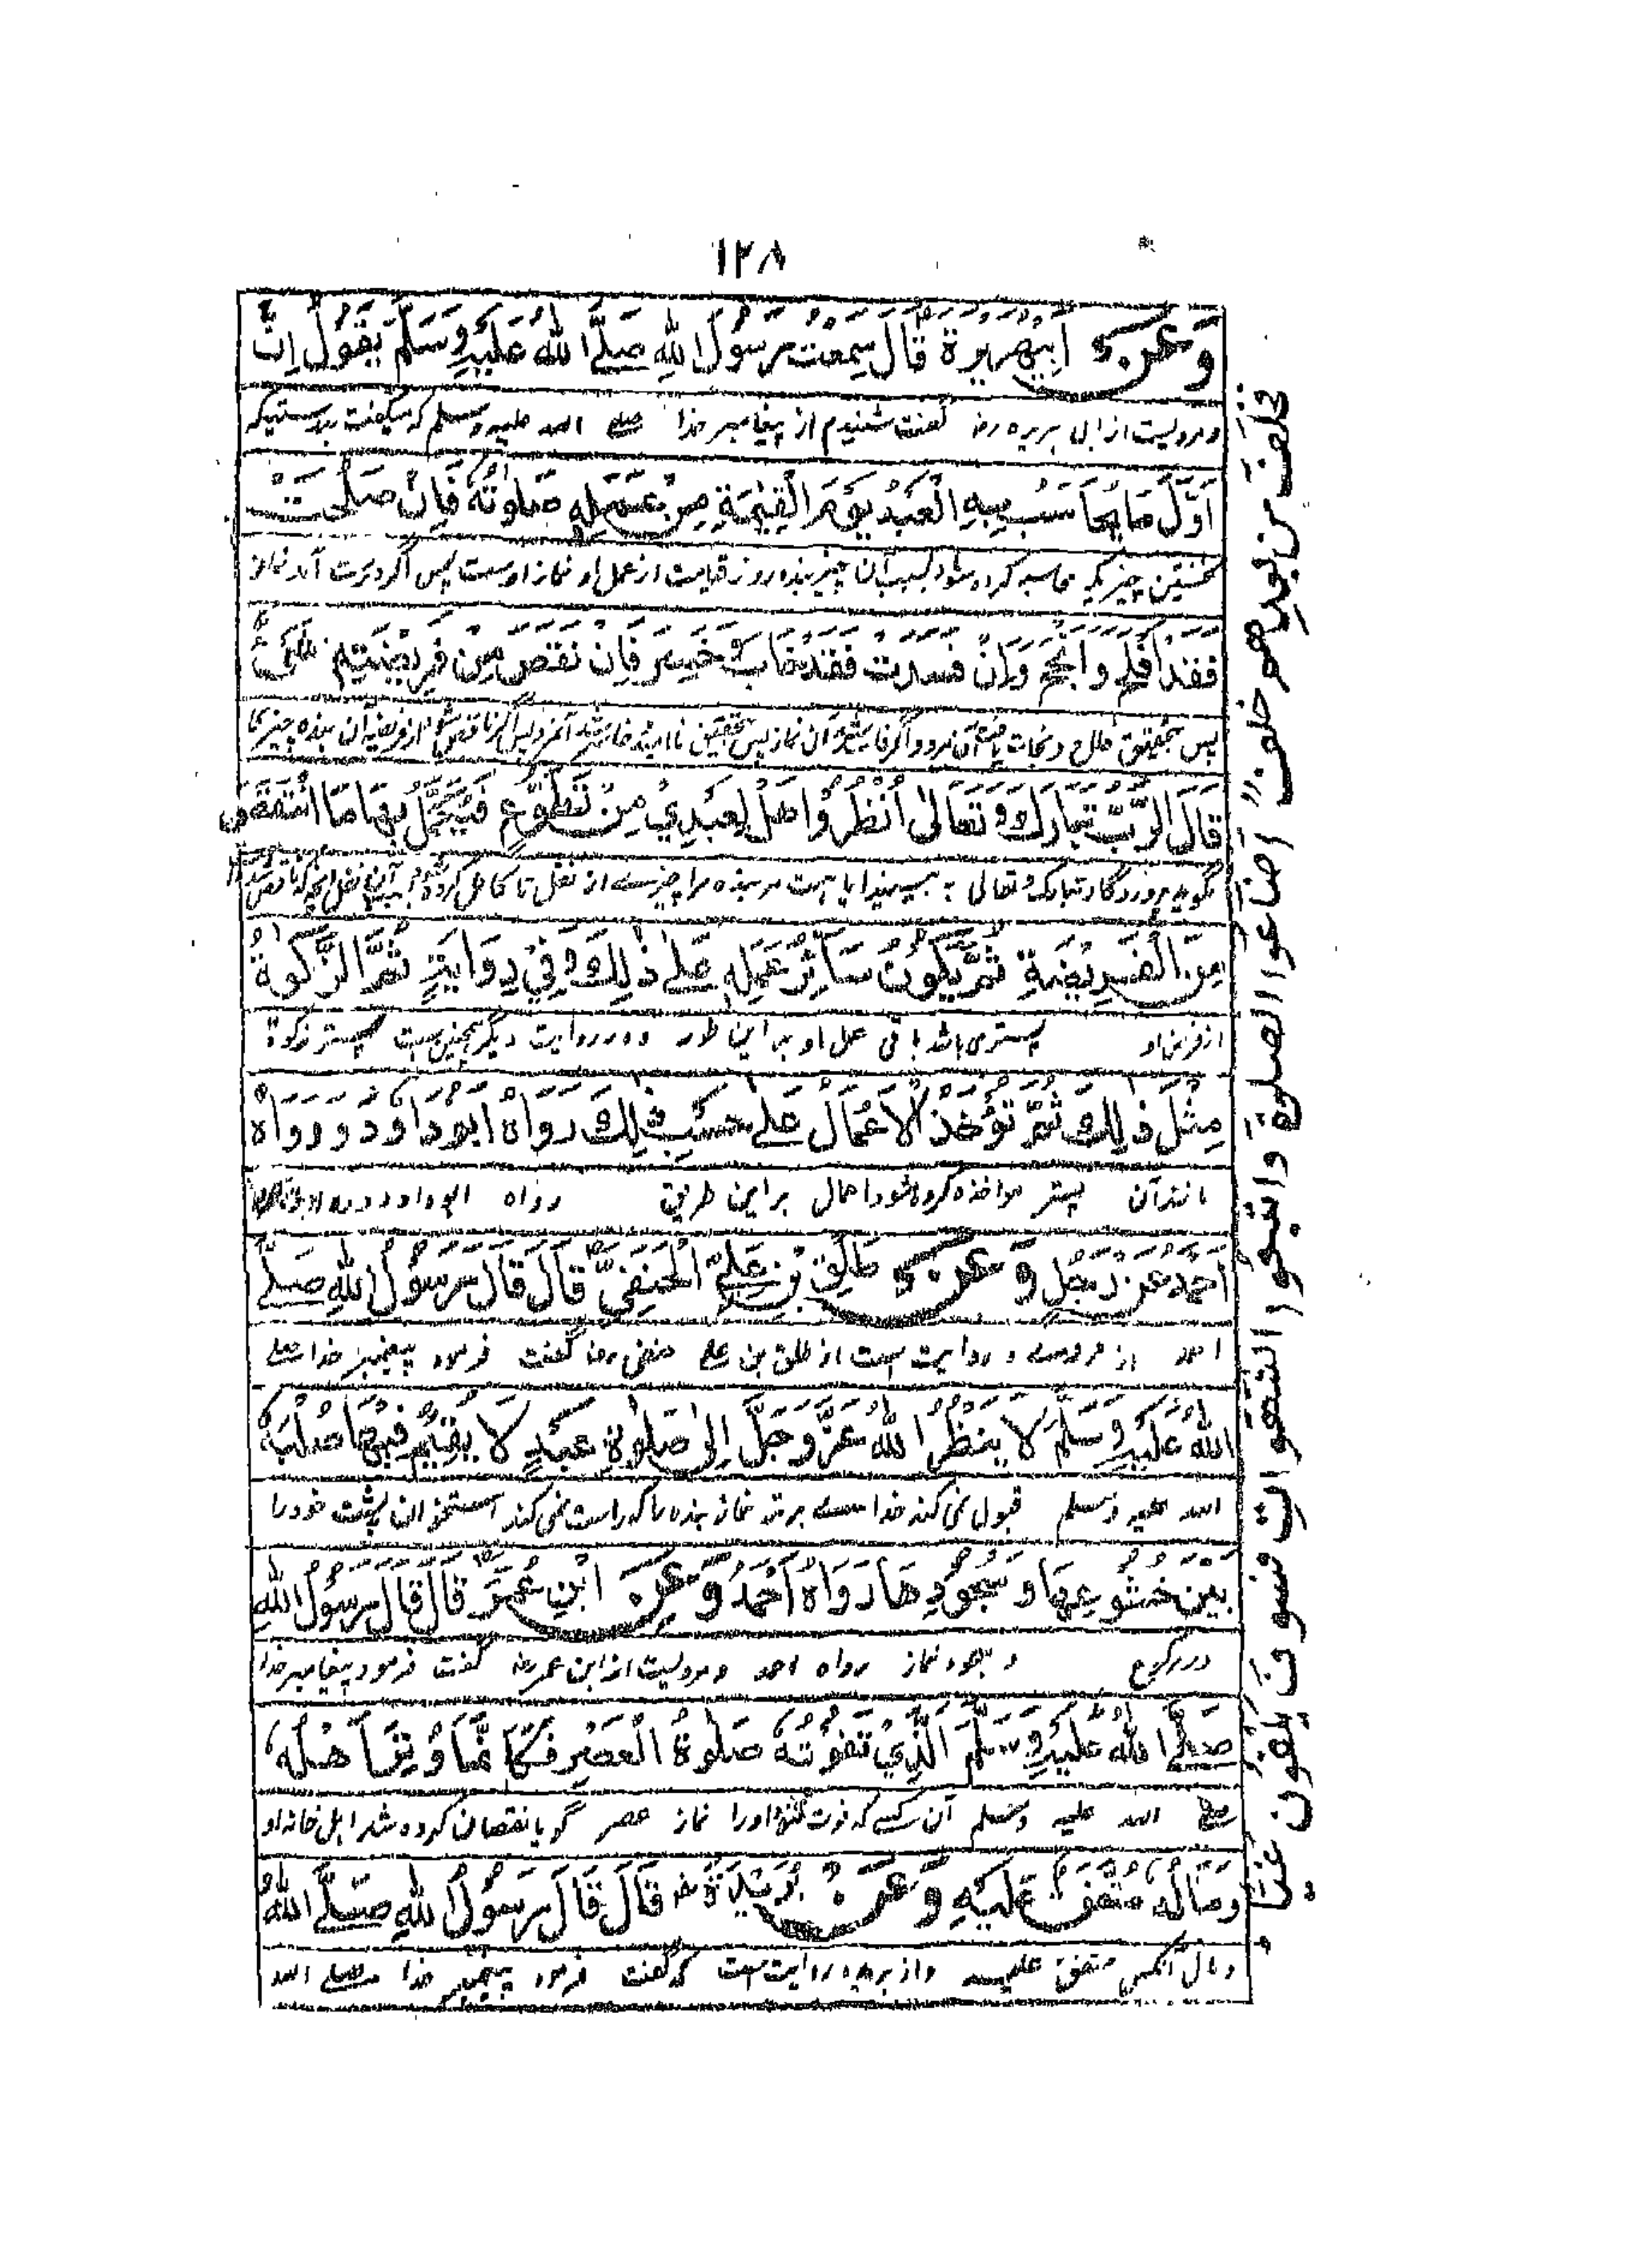 ۱۲۸
وَعَنْ اَبِيْهُرَيْرَةَ قَالَ سَمِعْتُ رَسُوْلَ اللهِ صَلَّے اللهُ عَلَيْهِ وَسَلَّمَ يَقُوْلُ اِنَّ
و مرویست از ابی ہریرہ رضہ گفت شنیدم از پیغامبر خدا صلے اللہ علیہ وسلم کہ میگفت بدرستیکہ
اَوَّلَ مَا يُحَاسَبُ بِهِ الْعَبْدُ يَوْمَ الْقِيٰمَةِ مِنْ عَمَلِهٖ صَلٰوتُهٗ فَاِنْ صَلُحَتْ
نخستین چیزیکہ محاسبہ کردہ شود بسبب آن چیز بندہ روز قیامت از عمل او نماز اوست پس اگر درست آمد نماز
فَقَدْ اَفْلَحَ وَاَنْجَحَ وَاِنْ فَسَدَتْ فَقَدْ خَابَ وَخَسِرَ فَاِنْ نَقَصَ مِنْ فَرِيْضَتِهٖ شَیْءٌ
پس بتحقیق فلاح و نجات یافت آن مرد و اگر فاسد آن نماز پس بتحقیق ناامید آنمرد پس اگر ناقص شود از فریضہ آن بندہ چیز
قَالَ الرَّبُّ تَبَارَكَ وَتَعَالٰی اُنْظُرُوْا هَلْ لِعَبْدِيْ مِنْ تَطَوُّعٍ فَيُكَمَّلُ بِهَا مَا انْتَقَصَ
گوید پروردگار تبارک و تعالی بہ بینید آیا ہست مر بندہ مرا چیزے از نفل تا کامل کردہ شود بآن نفل آنچہ ناقص شد
مِنَ الْفَرِيْضَةِ ثُمَّ يَكُوْنُ سَائِرُ عَمَلِهٖ عَلٰے ذٰلِكَ وَفِيْ رِوَايَةٍ ثُمَّ الزَّكٰوةُ
از فرض او پستر می باشد باقی عمل او بر این طور و در روایت دیگر ہمچنین ست پستر زکوة
مِثْلَ ذٰلِكَ ثُمَّ تُؤْخَذُ الْاَعْمَالُ عَلٰے حَسَبِ ذٰلِكَ رَوَاهُ اَبُوْدَاوُدَ وَرَوَاهُ
مانند آن پستر مواخذہ کردہ شود اعمال بر این طریق رواہ ابوداود
اَحْمَدُ عَنْ رَجُلٍ وَعَنْ طَلْقِ بْنِ عَلِيٍّ الْحَنَفِيِّ قَالَ قَالَ رَسُوْلُ اللهِ صَلَّے
احمد از مردے و روایت ست از طلق بن علے حنفی رضہ گفت فرمود پیغمبر خدا صلے
اللهُ عَلَيْهِ وَسَلَّمَ لَا يَنْظُرُ اللهُ عَزَّ وَجَلَّ اِلٰی صَلٰوةِ عَبْدٍ لَا يُقِيْمُ فِيْهَا صُلْبَهٗ
اللہ علیہ وسلم قبول نمی کند خداے برتر نماز بندہ را کہ راست نمی کند استخوان پشت خود را
بَيْنَ خُشُوْعِهَا وَسُجُوْدِهَا رَوَاهُ اَحْمَدُ وَعَنْ ابْنِ عُمَرَ قَالَ قَالَ رَسُوْلُ اللهِ
در رکوع و سجود نماز رواہ احمد و مرویست از ابن عمر رضہ گفت فرمود پیغامبر خدا
صَلَّے اللهُ عَلَيْهِ وَسَلَّمَ الَّذِيْ تَفُوْتُهٗ صَلٰوةُ الْعَصْرِ فَكَاَنَّمَا وُتِرَ اَهْلُهٗ
صلے اللہ علیہ وسلم آن کسے کہ فوت اورا نماز عصر گویا نقصان کردہ شد اہل خانہ او
وَمَالُهٗ مُتَّفَقٌ عَلَيْهِ وَعَنْ بُرَيْدَةَ رض قَالَ قَالَ رَسُوْلُ اللهِ صَلَّے اللهُ
و مال آنکس متفق علیہ و از بریدہ روایت ست کہ گفت فرمود پیغمبر خدا صلے اللہ
فَخَلَفَ مِنْ بَعْدِهِمْ خَلْفٌ اَضَاعُوا الصَّلٰوةَ وَاتَّبَعُوا الشَّهَوَاتِ فَسَوْفَ يَلْقَوْنَ غَيًّا